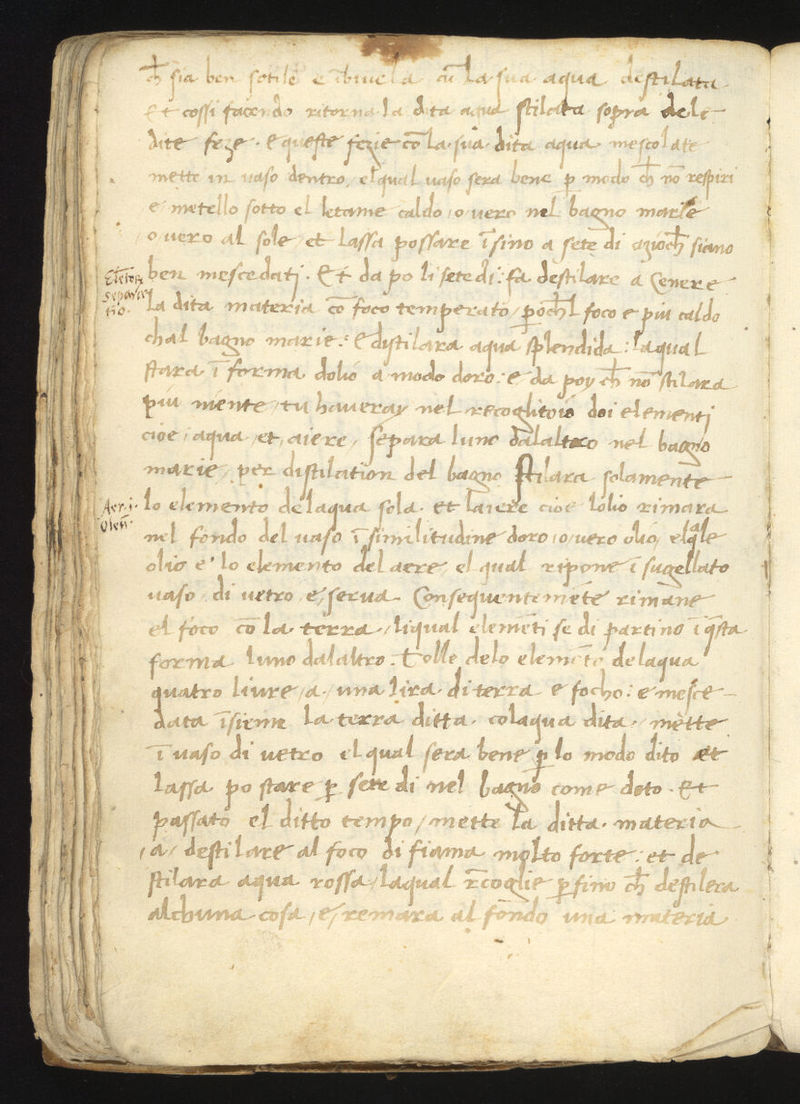 ch̄ sia ben sotile e ībivela cū la sua aqua destilata
Et cossi facendo ritorna la dita aqua stilata sopra dele
dite feze. E queste fezie cō la sua dita aqua mescolate
mette in vaso dentro, el qual vaso sera bene p̄ modo ch̄ nō respiri
e metello sotto el letame caldo, o vero nel bagno marie
o vero al sole, et lassa possare īsino a sete di azioch̄ siano
ben mescedati. Et da po li sete di: fa destilare a Cenere
Elemētor̄
separa
tio.
la dita materia cō foco temperato, p̄och̄l foco e piu caldo
chal bagno marie: E distilara aqua splendida: laqual
stara ī forma dolio a modo doro: e da poy ch̄ nō stilara
piu niente, tu haveray nel recoglitoio doi elementi
cioe, aqua, et, aiere, separa luno dalaltro nel bagno
marie, per distilation del bagno stilara solamente
Aer. i.
Oleū.
lo elemento delaqua sola. et laiere cioe lolio rimara
nel fondo del vaso ī similitudine doro, o, vero olio, elq̄le
olio e' lo elemento del aere, el qual ripone ī sugellato
vaso di vetro e, serva. Consequentemēte rimane
el foco cō la terra, liqual elemēti se di partino ī q̄sta
forma luno dalaltro. Tolle delo elemēto delaqua
quatro livre, a, una lira di terra e focho: e mesce-
data īsieme la terra ditta. colaqua dita, mette
ī vaso di vetro el qual sera bene p̄ lo modo dito et
lassa po stare p̄ sete di nel bagno come doto. Et
passato el ditto tempo, mette la ditta. materia
, a, destilare al foco di fiama molto forte: et de
stilara aqua rossa, laqual r̄coglie p̄fino ch̄ destilera
alchuna cosa, e, remara al fondo una materia